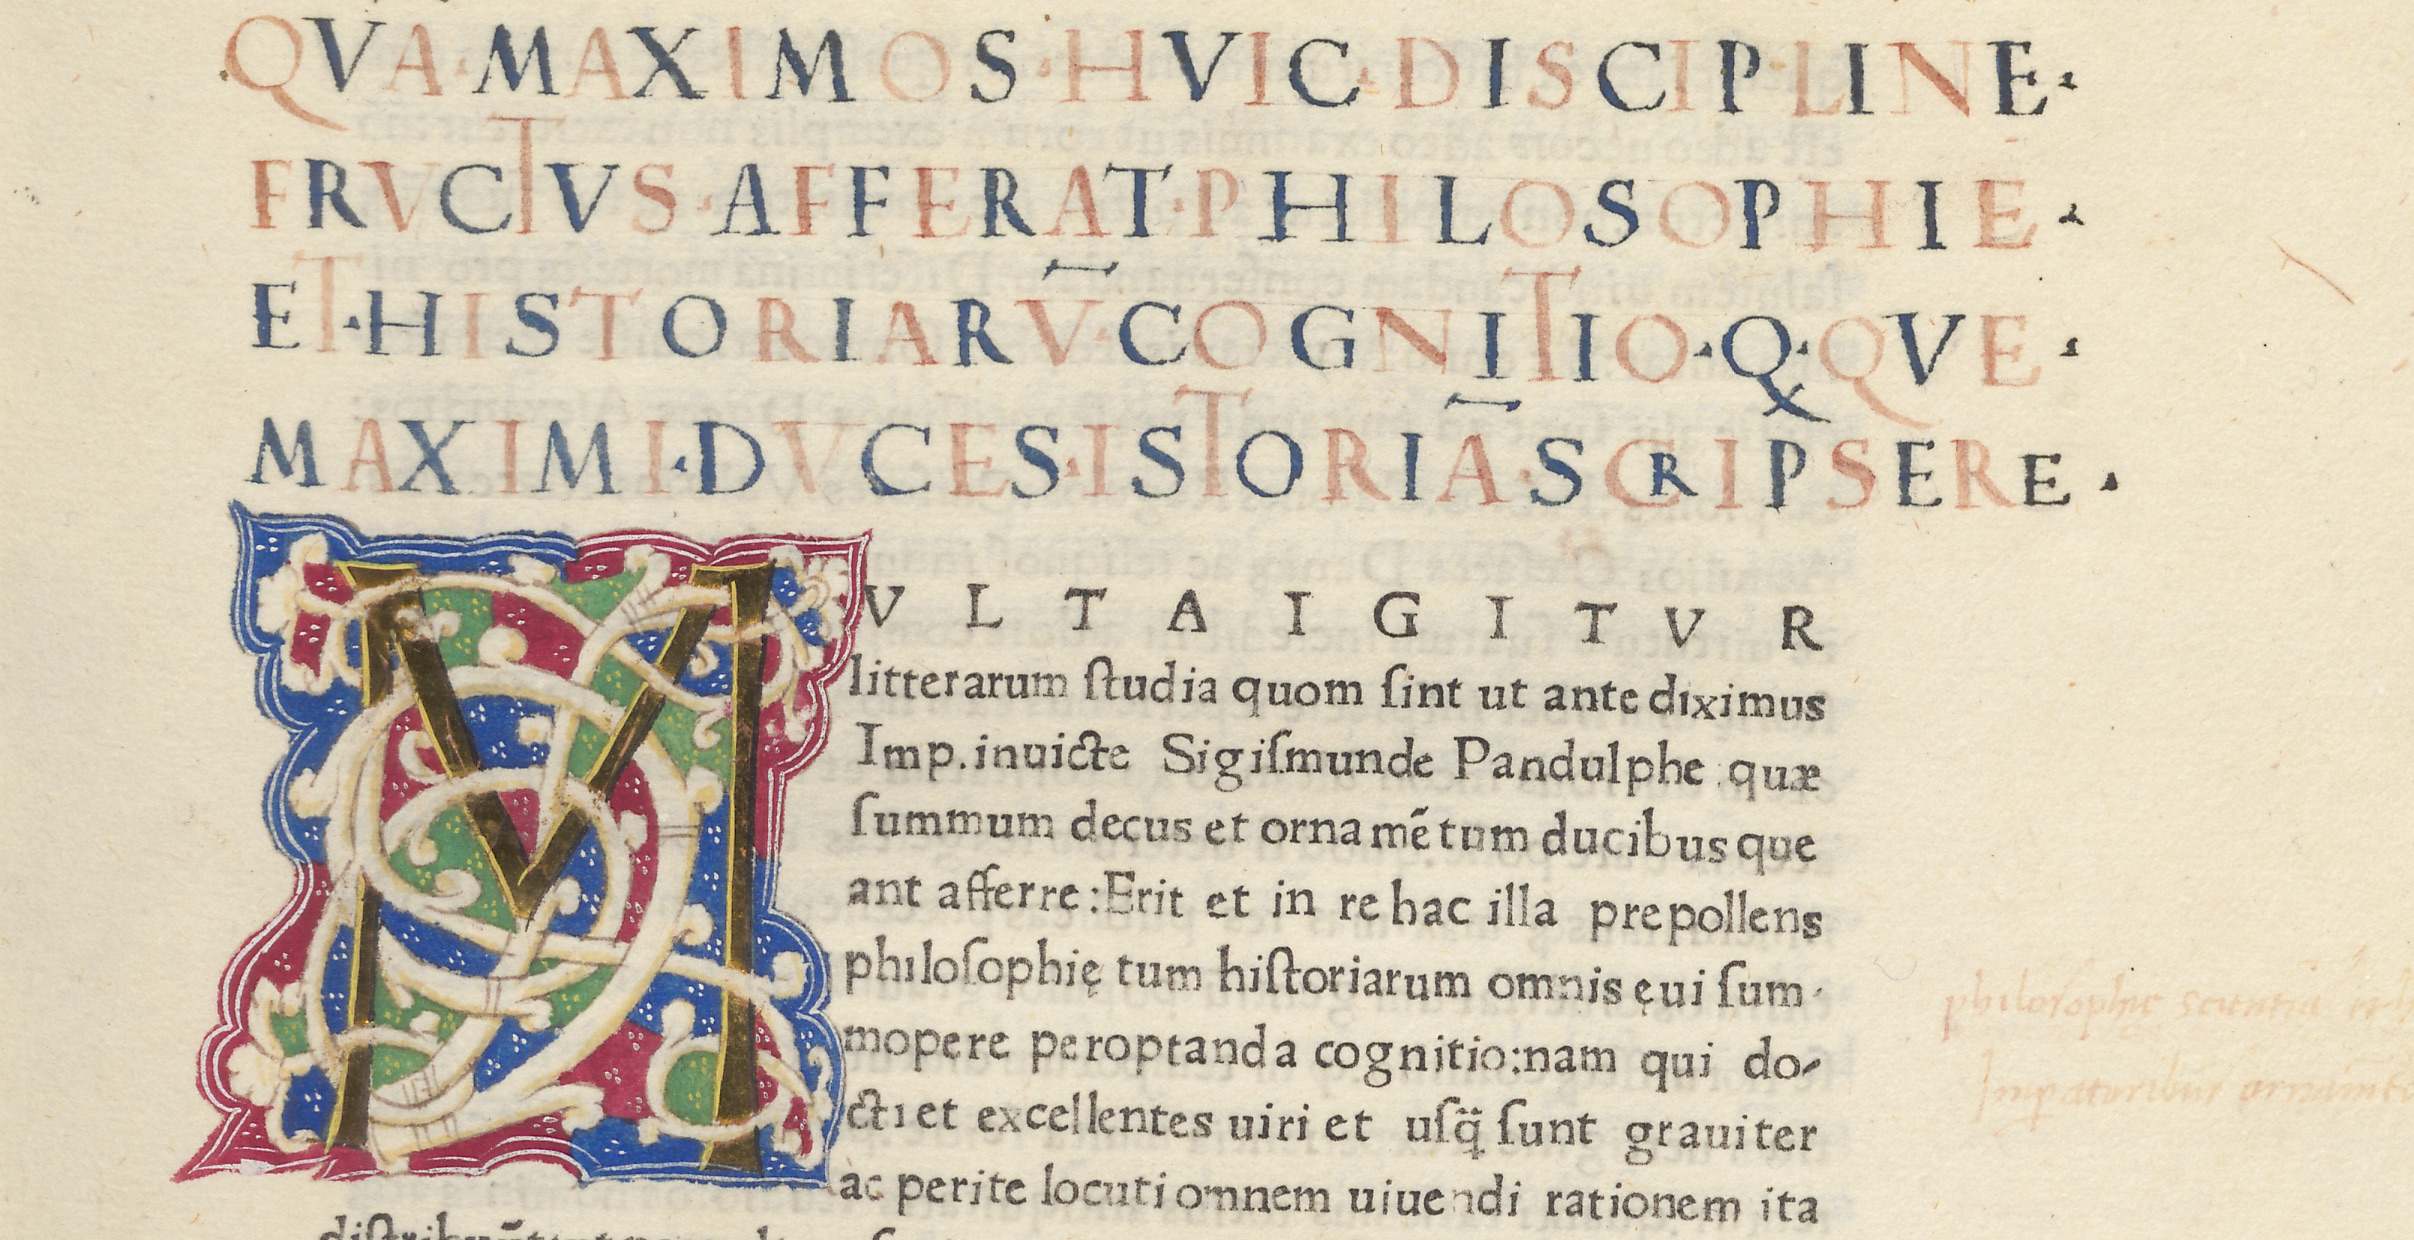 QVA·MAXIMOS·HVIC·DISCIPLINE·
FRVCTVS·AFFERAT·PHILOSOPHIE·
ET·HISTORIARV̄·COGNITIO·Q·QVE·
MAXIMI·DVCES·ISTORIĀ·SCRIPSERE·
MVLTA IGITVR
litterarum ſtudia quom ſint ut ante diximus
Imp. inuicte Sigiſmunde Pandulphe quæ
ſummum decus et ornamētum ducibus que
ant afferre: Erit et in re hac illa prepollens
philoſophię tum hiſtoriarum omnis ęui ſum
mopere peroptanda cognitio: nam qui do-
cti et excellentes uiri et uſq̈ ſunt grauiter
ac perite locuti omnem uiuendi rationem ita
philosophię scientia et
Imperatoribus